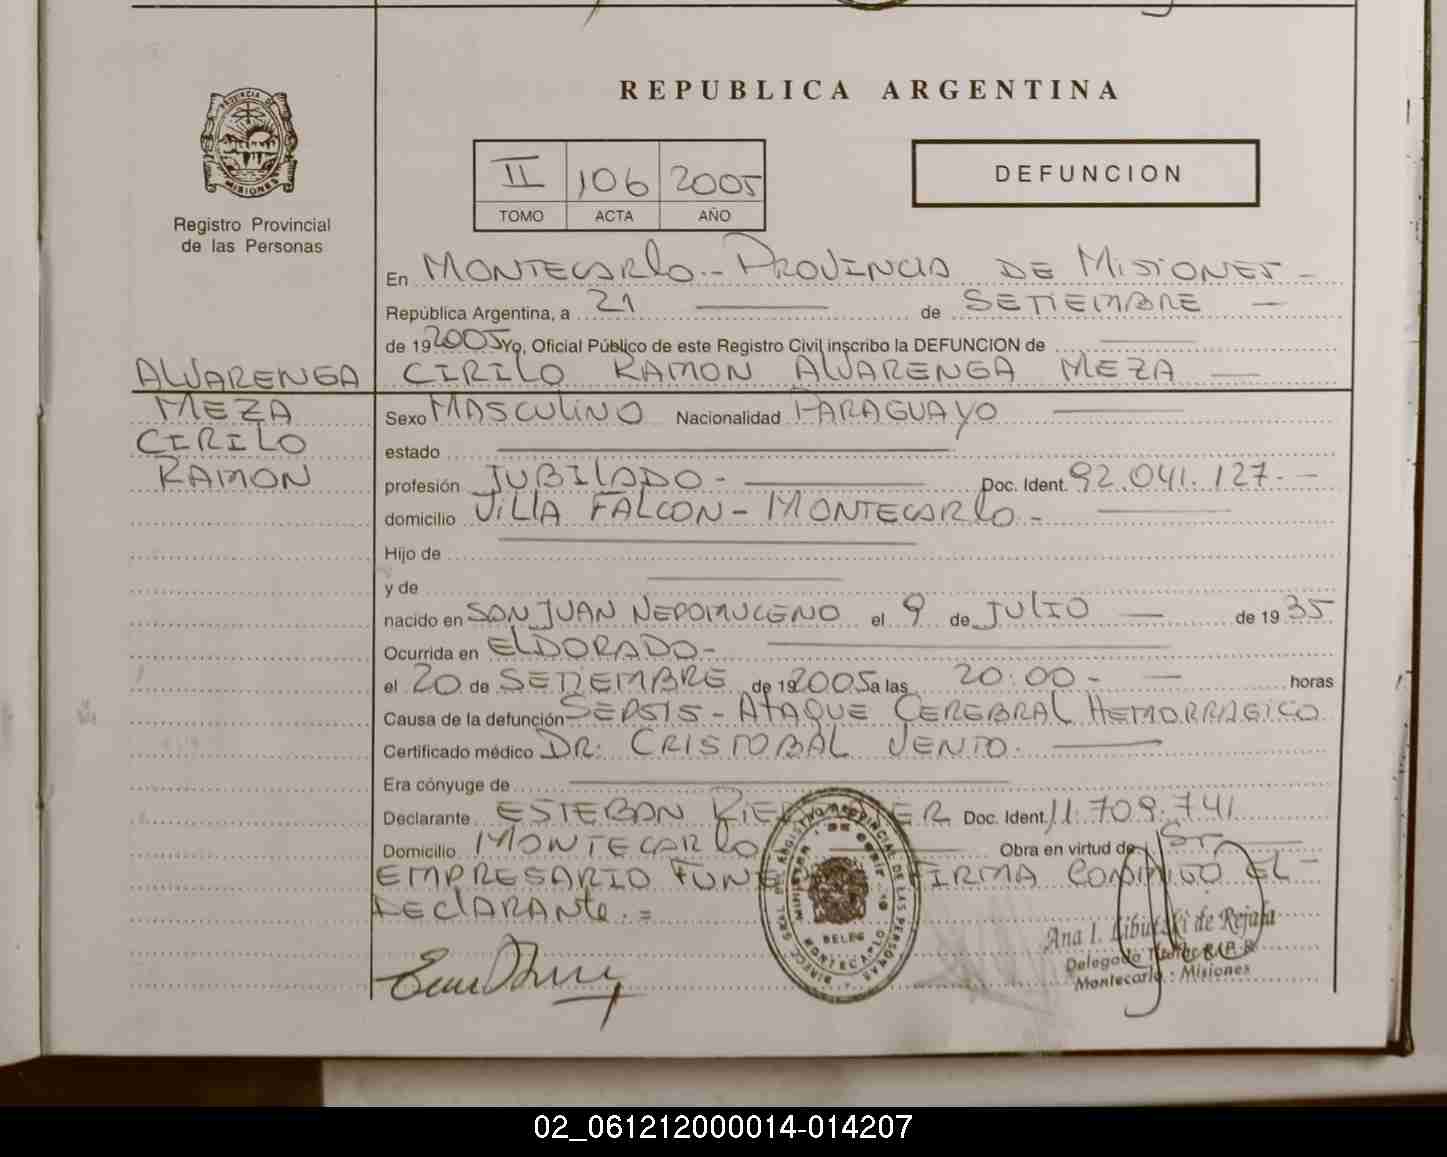 REPUBLICA ARGENTINA
PROVINCIA DE MISIONES
Registro Provincial
de las Personas
II 106 2005
TOMO ACTA AÑO
DEFUNCION
En MONTECARLO.- PROVINCIA DE MISIONES -
República Argentina, a 21 de SETIEMBRE -
de 192005 Yo, Oficial Público de este Registro Civil inscribo la DEFUNCION de
ALVARENGA
MEZA
CIRILO
RAMON
CIRILO RAMON ALVARENGA MEZA -
Sexo MASCULINO Nacionalidad PARAGUAYO
estado
profesión JUBILADO - Doc. Ident. 92.041.127.-
domicilio VILLA FALCON - MONTECARLO -
Hijo de
y de
nacido en SAN JUAN NEPOMUCENO el 9 de JULIO - de 19 35
Ocurrida en ELDORADO-
el 20 de SETIEMBRE de 192005 a las 20:00 - - horas
Causa de la defunción SEPSIS - ATAQUE CEREBRAL HEMORRAGICO
Certificado médico DR: CRISTOBAL VENTO.
Era cónyuge de
Declarante ESTEBAN Doc. Ident. 11.709.741
Domicilio MONTECARLO Obra en virtud de
EMPRESARIO FIRMA CONMIGO EL -
DECLARANTE. =
DIRECC. GRAL. DEL REGISTRO PROVINCIAL DE LAS PERSONAS
MONTECARLO
Ana I. de Rejala
Montecarlo - Misiones
02_061212000014-014207